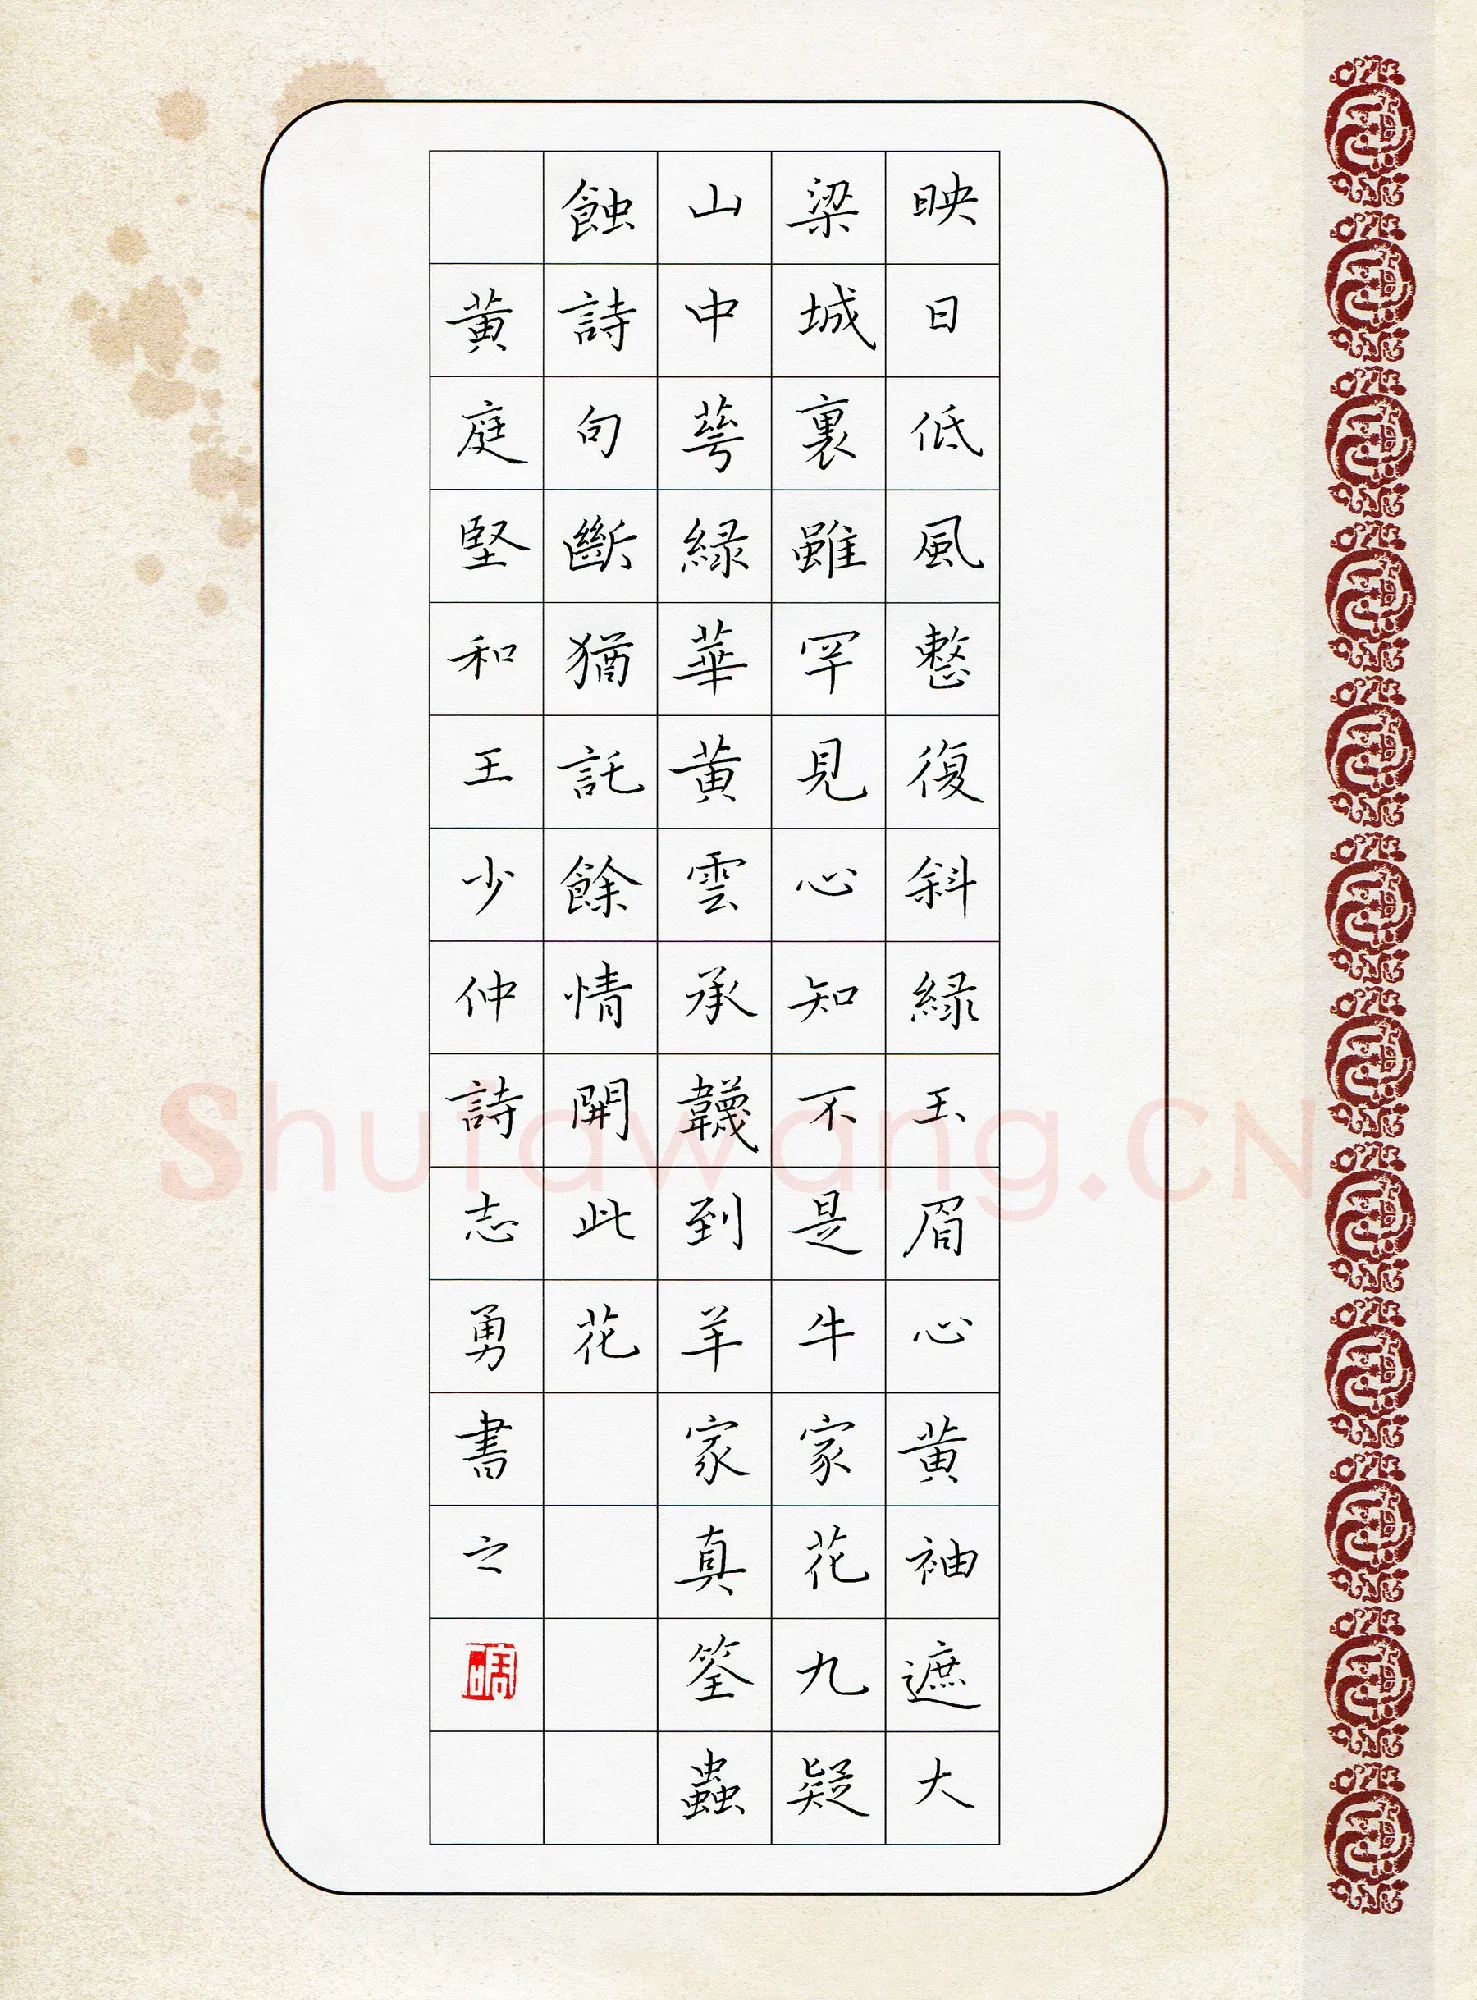 映日低風整復斜緑玉眉心黄袖遮大
梁城裏雖罕見心知不是牛家花九疑
山中萼緑華黄雲承韈到羊家真筌蟲
蝕詩句斷猶託餘情開此花
黄庭堅和王少仲詩志勇書之
Shufawang.CN